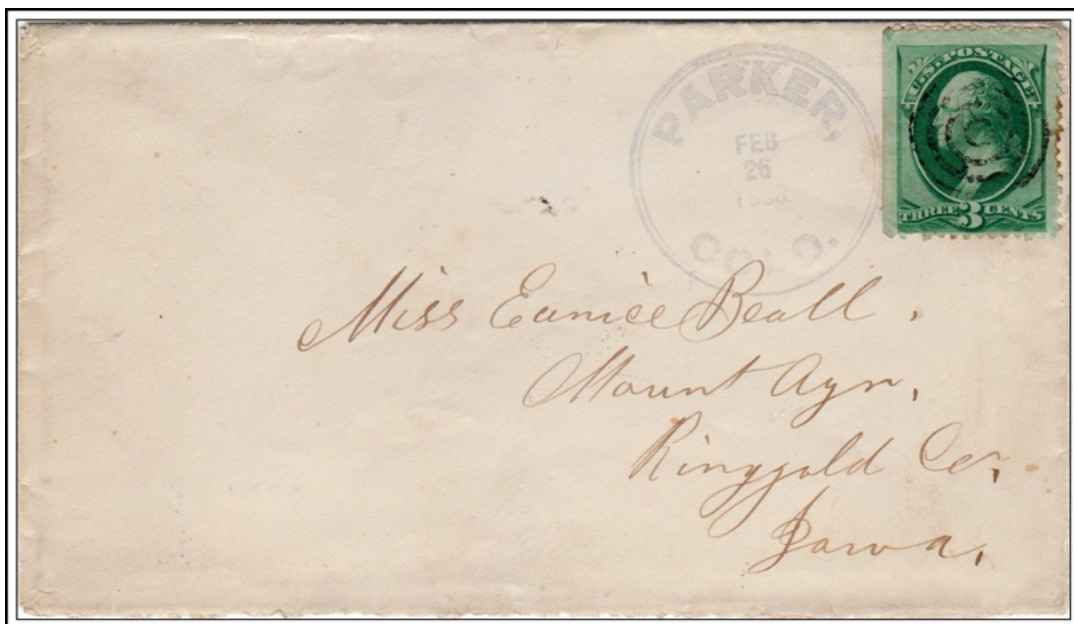 PARKER,
FEB
26
COLO.
U.S. POSTAGE
THREE 3 CENTS
Miss Eunice Beall.
Mount Ayr,
Ringgold Co,
Iowa,